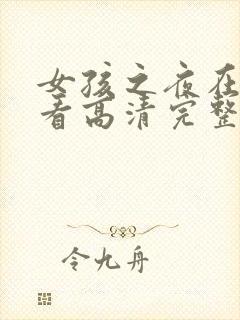 女孩之夜在
看高清完整
令九舟